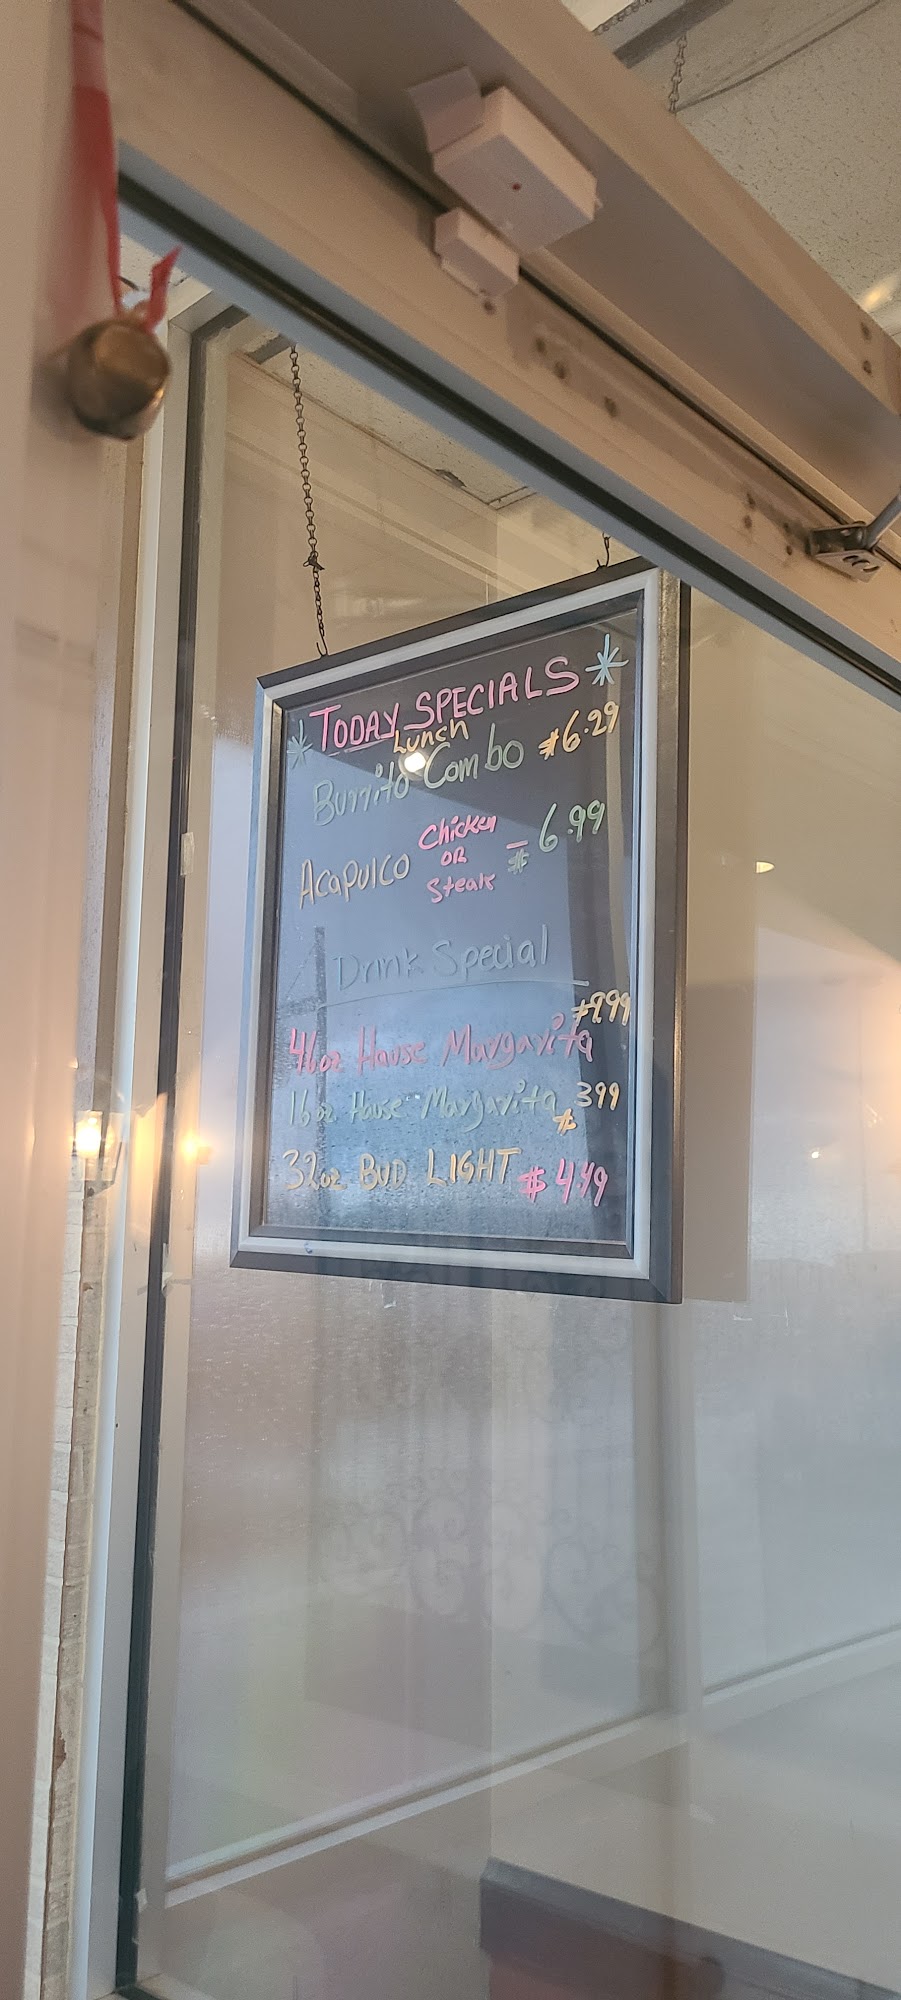 TODAY SPECIALS
Lunch
Burrito Combo $6.29
Acapulco Chicken OR Steak - $6.99
Drink Special
$9.99
46oz House Margarita
16oz House Margarita $3.99
32oz BUD LIGHT $4.49